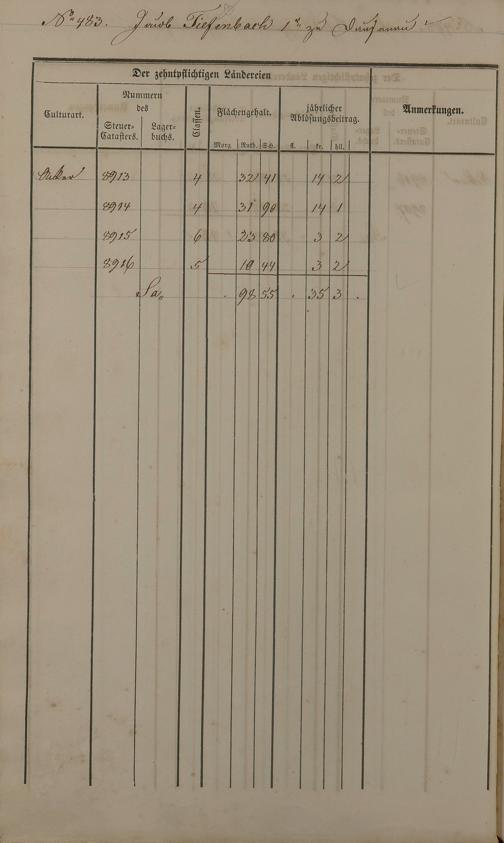 No 483. Jacob Tiefenbach 1r zu Dausenau
Der zehntpflichtigen Ländereien
Culturart.
Nummern
des
Steuer-
Catasters.
Lager-
buchs.
Classen.
Flächengehalt.
Morg. Ruth. Sch.
jährlicher
Ablösungsbeitrag.
fl. kr. hll.
Anmerkungen.
Acker 8913 4 32 41 14 2
8914 4 31 90 14 1
8915 6 23 80 3 2
8916 5 10 44 3 2
Sa. . 98 55 . 35 3 .